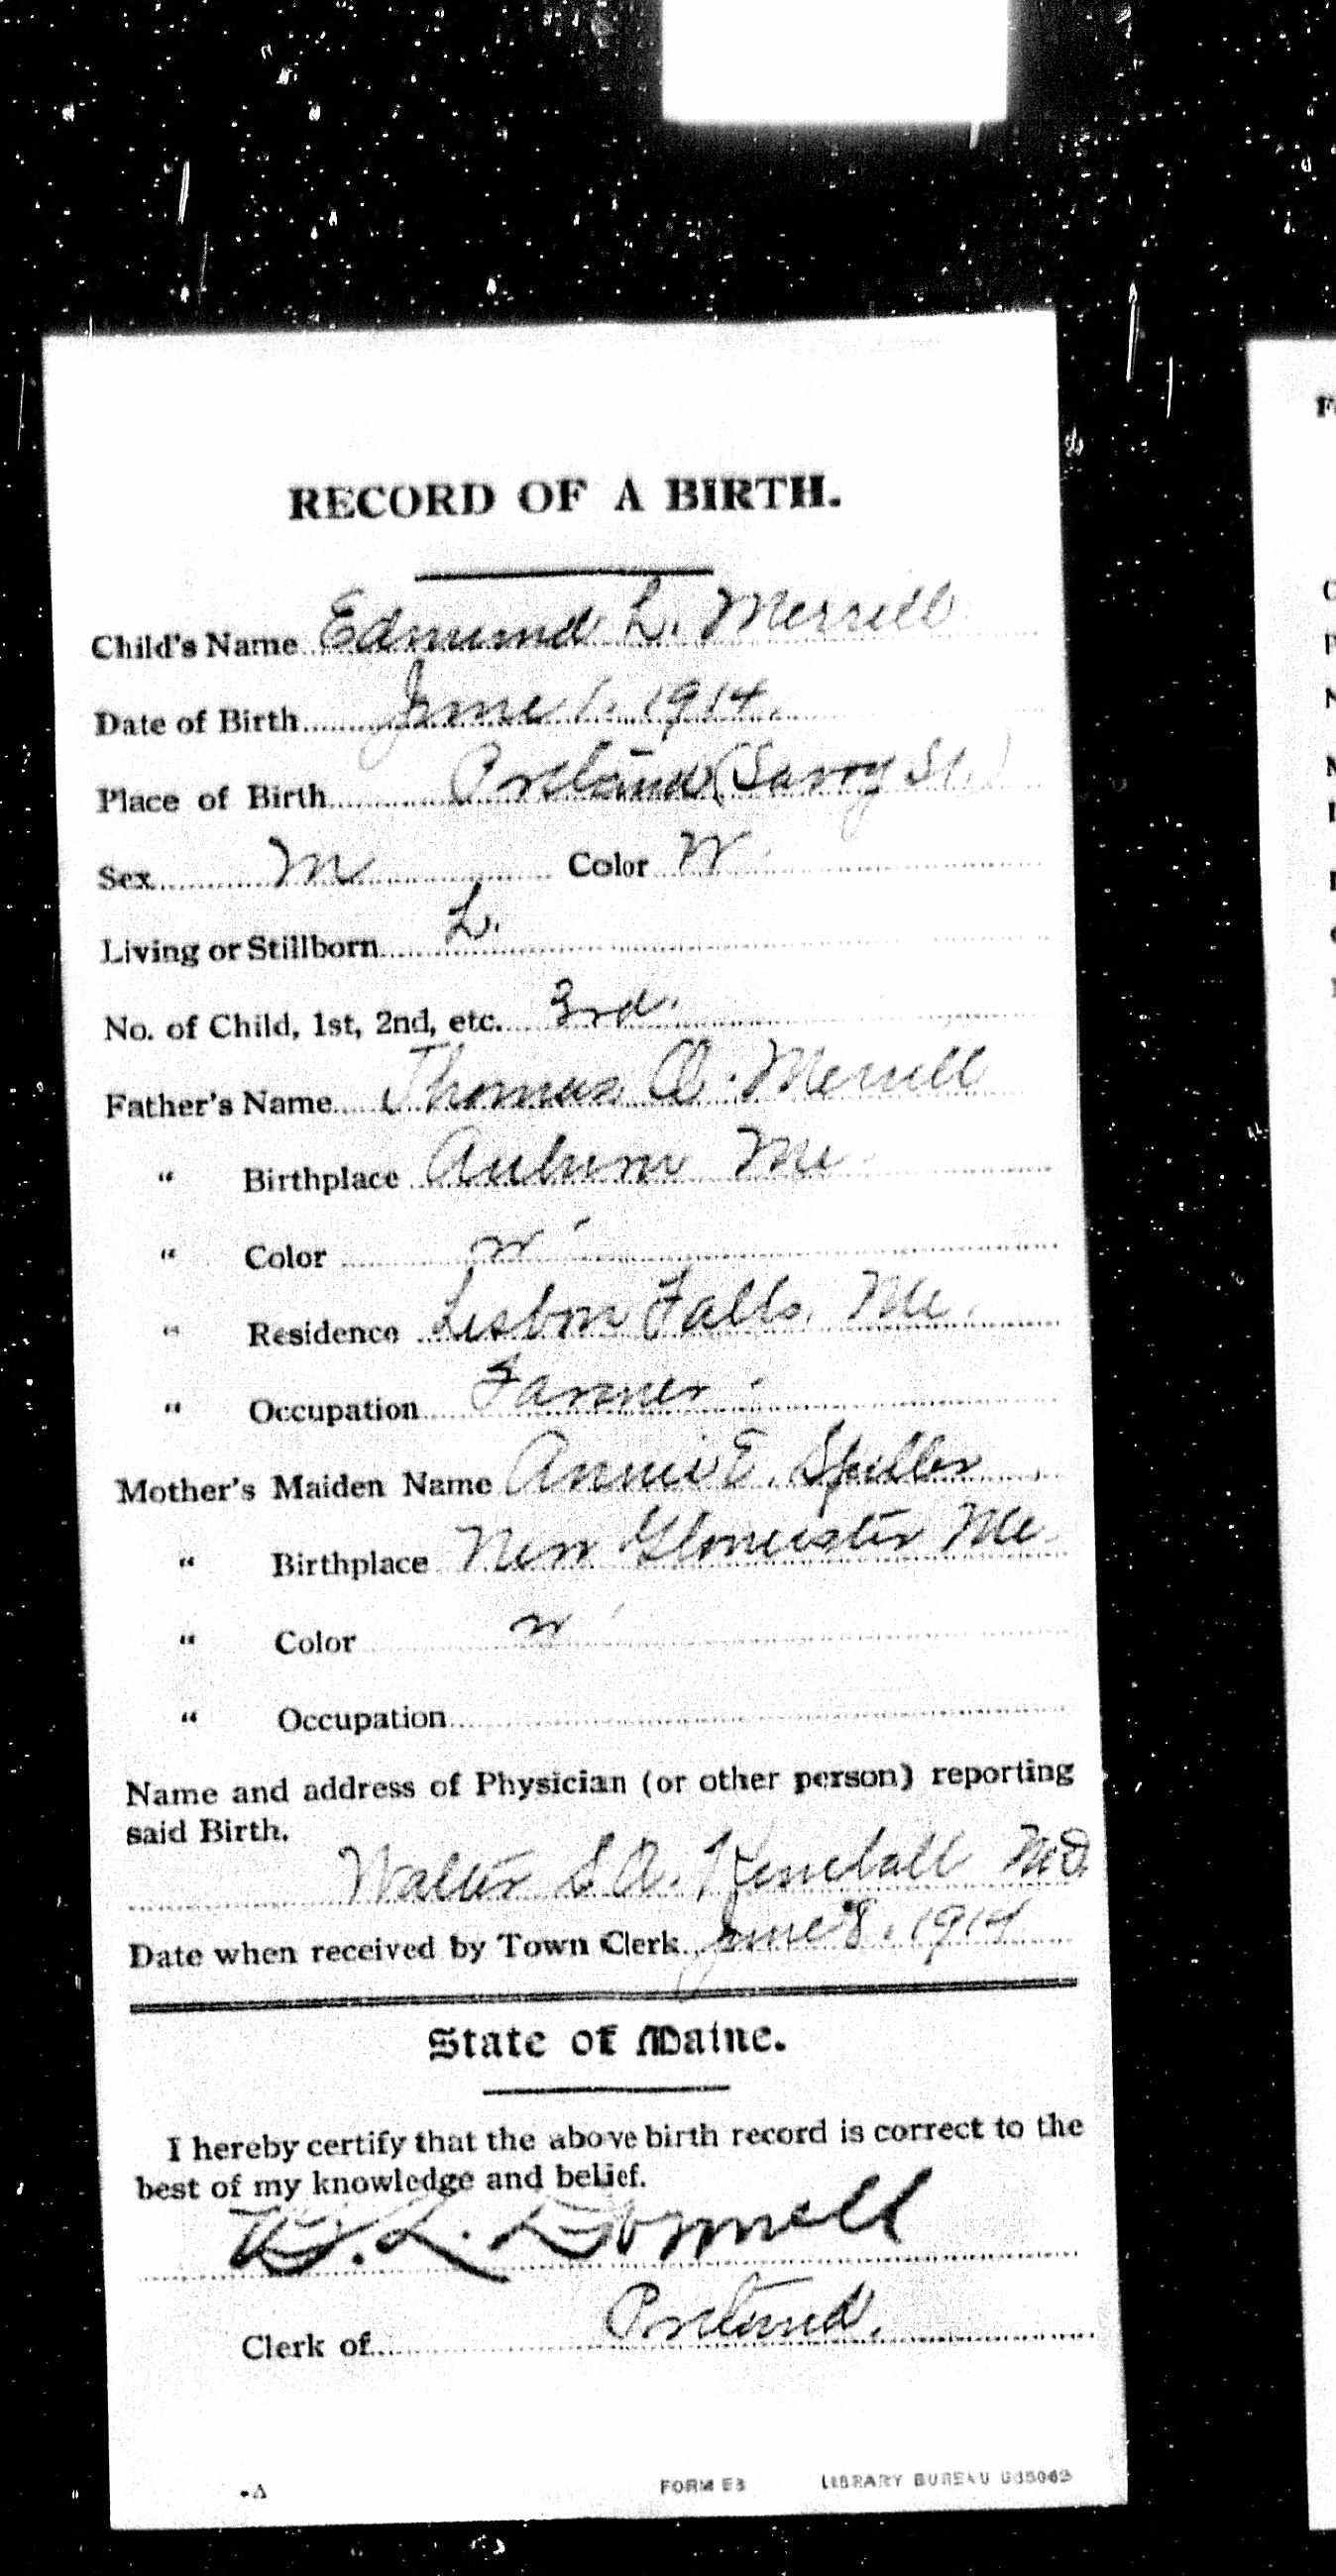 RECORD OF A BIRTH.
Child's Name Edmund L. Merrill
Date of Birth June 1. 1914.
Place of Birth Portland (Savoy St.)
Sex M Color W.
Living or Stillborn L.
No. of Child, 1st, 2nd, etc. 3rd.
Father's Name Thomas A. Merrill
" Birthplace Auburn Me.
" Color W
" Residence Lisbon Falls, Me.
" Occupation Farmer.
Mother's Maiden Name Annie E. Spiller
" Birthplace New Gloucester Me.
" Color W
" Occupation
Name and address of Physician (or other person) reporting
said Birth.
Walter S. A. Kendall M.D.
Date when received by Town Clerk June 8. 1914
State of Maine.
I hereby certify that the above birth record is correct to the
best of my knowledge and belief.
L.
Clerk of Portland.
FORM E3 LIBRARY BUREAU